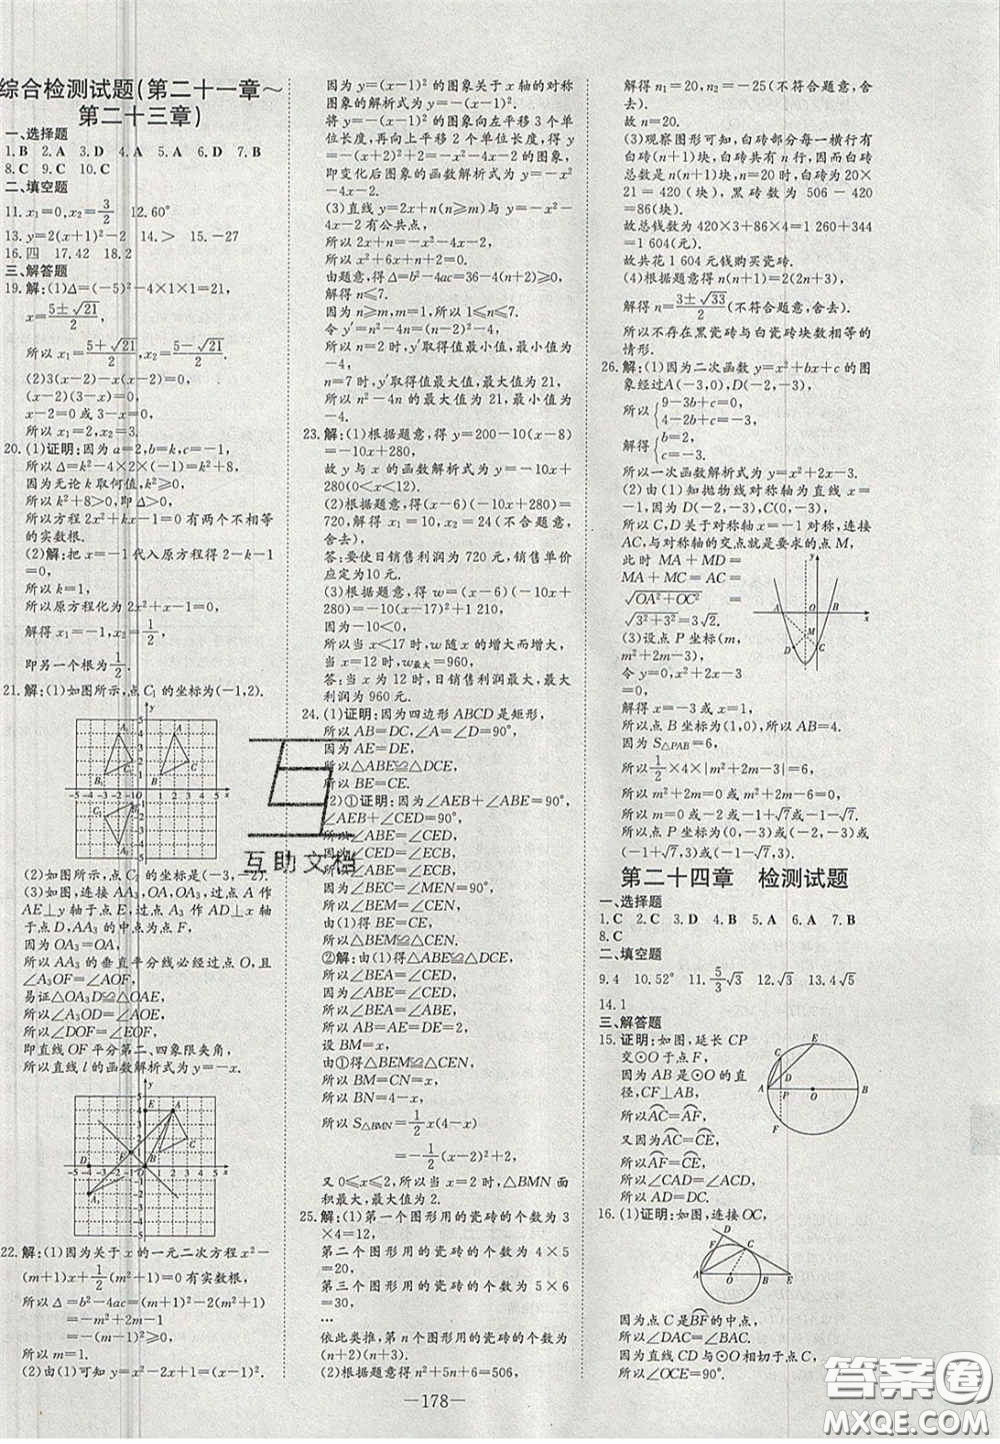 综合检测试题(第二十一章～
第二十三章)
一、选择题
1.B 2.A 3.D 4.A 5.A 6.D 7.B
8.C 9.C 10.C
二、填空题
11.x₁=0,x₂=3/2 12.60°
13.y=2(x+1)²-2 14.> 15.-27
16.四 17.42 18.2
三、解答题
19.解:(1)Δ=(-5)²-4×1×1=21,
x=(5±√21)/2,
所以 x₁=(5+√21)/2,x₂=(5-√21)/2.
(2)3(x-2)-x(x-2)=0,
(x-2)(3-x)=0,
x-2=0 或 3-x=0,
所以 x₁=2,x₂=3.
20.(1)证明:因为 a=2,b=k,c=-1,
所以 Δ=k²-4×2×(-1)=k²+8,
因为无论 k 取何值,k²≥0,
所以 k²+8>0,即 Δ>0,
所以方程 2x²+kx-1=0 有两个不相等
的实数根.
(2)解:把 x=-1 代入原方程得 2-k-1
=0,
所以 k=1,
所以原方程化为 2x²+x-1=0,
解得 x₁=-1,x₂=1/2,
即另一个根为1/2.
21.解:(1)如图所示,点 C₁ 的坐标为(-1,2).
(2)如图所示,点 C₂ 的坐标为(-3,-2).
(3)如图,连接 AA₃,OA,OA₃,过点 A 作
AE⊥y 轴于点 E,过点 A₃ 作 A₃D⊥x 轴
于点 D,AA₃ 的中点为点 F,
因为 OA₃=OA,
所以 AA₃ 的垂直平分线必经过点 O,且
∠A₃OF=∠AOF,
易证△OA₃D≌△OAE,
所以∠A₃OD=∠AOE,
所以∠DOF=∠EOF,
即直线 OF 平分第二、四象限夹角,
所以直线 l 的函数解析式为 y=-x.
22.解:(1)因为关于 x 的一元二次方程 x²-
(m+1)x+1/2(m²+1)=0 有实数根,
所以 Δ=b²-4ac=(m+1)²-2(m²+1)
=-m²+2m-1
=-(m-1)²≥0,
所以 m=1.
(2)由(1)可知 y=x²-2x+1=(x-1)²,
因为 y=(x-1)² 的图象关于 x 轴的对称
图象的解析式为 y=-(x-1)²,
将 y=-(x-1)² 的图象向左平移 3 个单
位长度,再向上平移 2 个单位长度,得到
y=-(x+2)²+2=-x²-4x-2 的图象,
即变化后图象的函数解析式为 y=-x²-
4x-2.
(3)直线 y=2x+n(n≥m)与图象 y=
-x²-4x-2 有公共点,
所以 2x+n=-x²-4x-2,
所以 x²+6x+n+2=0,
由题意,得 Δ=b²-4ac=36-4(n+2)≥0,
解得 n≤7.
因为 n≥m,m=1,所以 1≤n≤7.
令 y′=n²-4n=(n-2)²-4,
所以 n=2 时,y′取得值最小值,最小值为
-4.
n=7 时,y′取得值最大值,最大值为 21,
所以 n²-4n 的最大值为 21,最小值为
-4.
23.解:(1)根据题意,得 y=200-10(x-8)
=-10x+280,
故 y 与 x 的函数解析式为 y=-10x+
280(0<x<12).
(2)根据题意,得(x-6)(-10x+280)=
720,解得 x₁=10,x₂=24(不合题意,
舍去),
答:要使日销售利润为 720 元,销售单价
应定为10元.
(3)根据题意,得 w=(x-6)(-10x+
280)=-10(x-17)²+1 210,
因为-10<0,
所以当 x<17 时,w 随 x 的增大而增大,
当 x=12 时,w最大=960,
答:当 x=12 时,日销售利润最大,最大
利润为 960 元.
24.(1)证明:因为四边形 ABCD 是矩形,
所以 AB=DC,∠A=∠D=90°,
因为 AE=DE,
所以△ABE≌△DCE,
所以 BE=CE.
(2)①证明:因为∠AEB+∠ABE=90°,
∠AEB+∠CED=90°,
所以∠ABE=∠CED,
所以∠ABE=∠ECB,
所以∠CED=∠ECB,
因为∠BEM=∠CEN=90°,
由(1)得 BE=CE,
所以△BEM≌△CEN.
②解:由(1)得△ABE≌△DCE,
所以∠BEA=∠CED,
所以∠BEA=∠ABE,
所以 AB=AE=DE=2,
设 BM=x,
由①得△BEM≌△CEN,
所以 BM=CN=x,
所以 BN=4-x,
所以 S△BMN=1/2x(4-x)
=-1/2(x-2)²+2,
又 0≤x≤2,所以当 x=2 时,△BMN 面
积最大,最大值为 2.
25.解:(1)第一个图形用的瓷砖的个数为 3
×4=12,
第二个图形用的瓷砖的个数为 4×5
=20,
第三个图形用的瓷砖的个数为 5×6
=30,
…
依此类推,第 n 个图形用的瓷砖的个数为
(n+2)(n+3).
(2)根据题意得 n²+5n+6=506,
解得 n₁=20,n₂=-25(不符合题意,舍
去),
故 n=20.
(3)观察图形可知,白砖部分每一横行有
白砖(n+1)块,每一竖列有 n 块,因而白砖
总数是 n(n+1)块,n=20 时,白砖为 20×
21=420(块),黑砖数为 506-420
=86(块).
故总钱数为 420×3+86×4=1 260+344
=1 604(元).
故共花 1 604 元钱购买瓷砖.
(4)根据题意,得 n(n+1)=2(2n+3),
解得 n=(3±√33)/2(不符合题意,舍去).
所以不存在黑瓷砖与白瓷砖块数相等的
情形.
26.解:(1)因为二次函数 y=x²+bx+c 的图
象经过A(-3,0),D(-2,-3),
所以{9-3b+c=0,
4-2b+c=-3,
解得{b=2,
c=-3.
所以一次函数解析式为 y=x²+2x-3.
(2)由(1)知抛物线对称轴为直线 x=
-1,因为 D(-2,-3),C(0,-3),
所以 C,D 关于对称轴 x=-1 对称,连接
AC,与对称轴的交点就是要求的点 M,
此时 MA+MD=
MA+MC=AC=
√OA²+OC²=
√3²+3²=3√2.
(3)设点 P 坐标(m,
m²+2m-3),
令 x²+2x-3=0,
解得 x=-3 或 x=1,
所以点 B 坐标为(1,0),所以 AB=4.
因为 S△PAB=6,
所以1/2×4×|m²+2m-3|=6,
所以 m²+2m-6=0,m²+2m=0,
所以 m=0 或-2 或-1+√7或-1-√7,
所以点 P 坐标为(0,-3)或(-2,-3)或
(-1+√7,3)或(-1-√7,3).
第二十四章 检测试题
一、选择题
1.C 2.C 3.D 4.B 5.A 6.A 7.B
8.C
二、填空题
9.4 10.52° 11.5/3√3 12.√3 13.4√5
14.1
三、解答题
15.证明:如图,延长 CP
交⊙O 于点 F,
因为 AB 是⊙O 的直
径,CF⊥AB,
所以AC=AF,
又因为AC=CE,
所以AF=CE,
所以∠CAD=∠ACD,
所以 AD=DC.
16.(1)证明:如图,连接 OC,
因为点 C是BF的中点,
所以∠DAC=∠BAC,
因为直线 CD 与⊙O 相切于点 C,
所以∠OCE=90°.
—178—
互助文档
答案圈
MXQE.COM